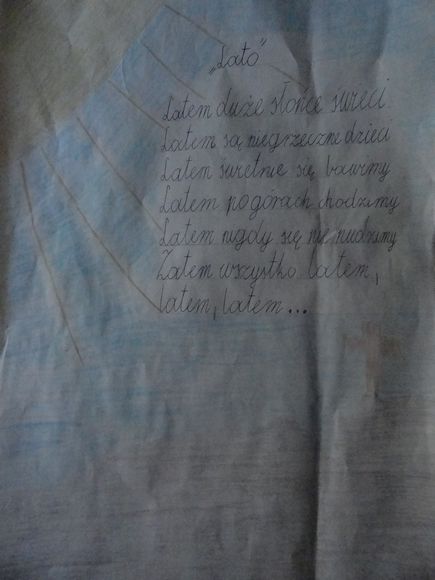 „Lato”
Latem duże słońce świeci.
Latem są niegrzeczne dzieci
Latem świetnie się bawimy
Latem po górach chodzimy
Latem nigdy się nie nudzimy
Zatem wszystko latem,
latem, latem...